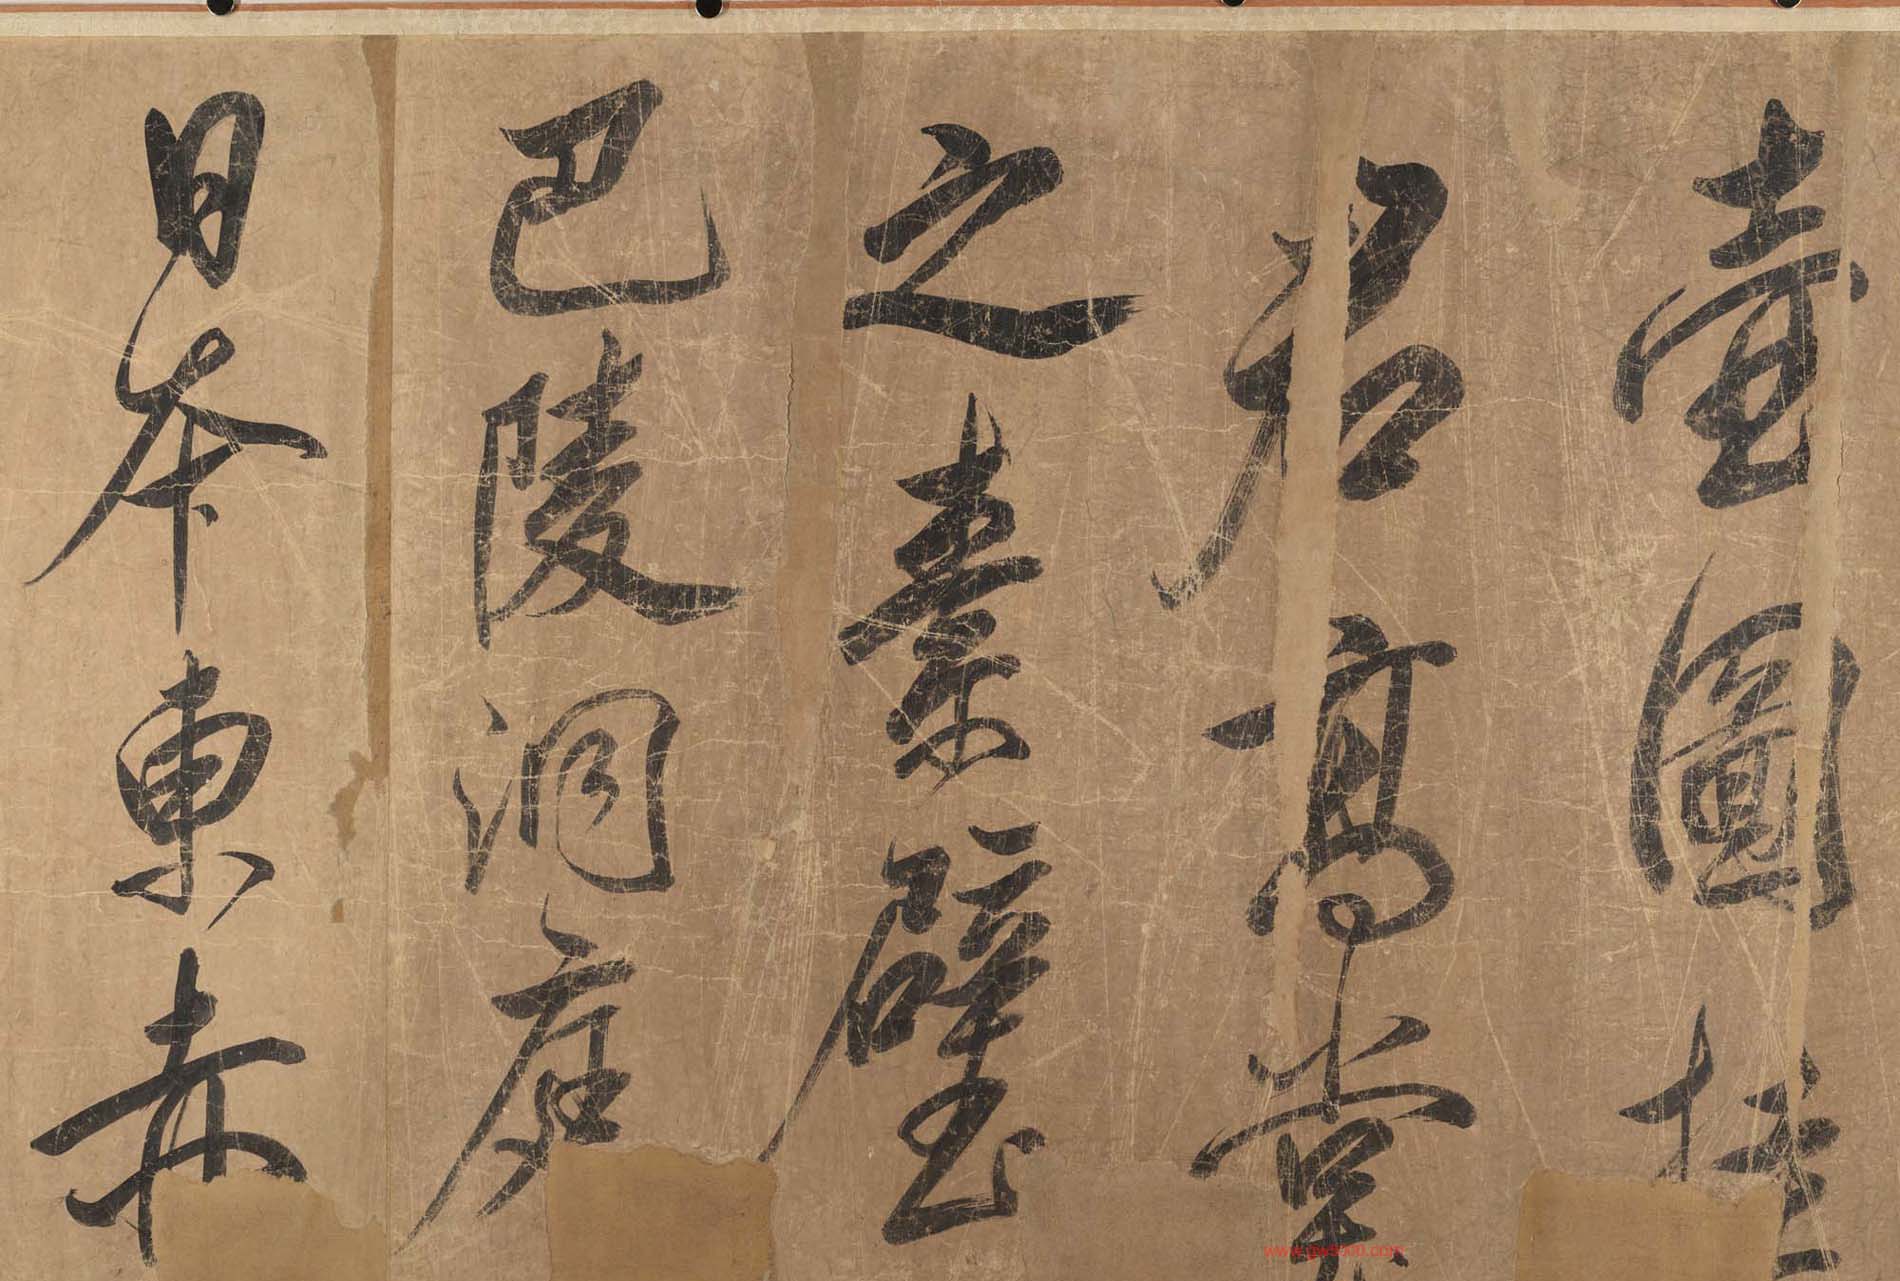 壺圖挂
君高堂
之素壁
巴陵洞庭
日本東赤
www.gw5000.com